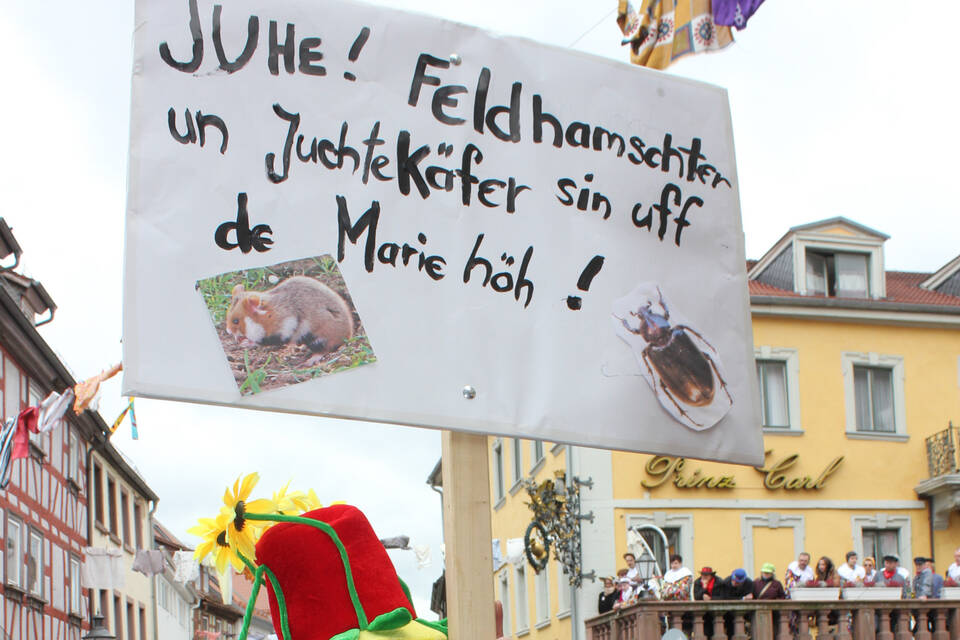 JUHE! Feldhamschter
un Juchtekäfer sin uff
de Marie höh!
Prinz Carl